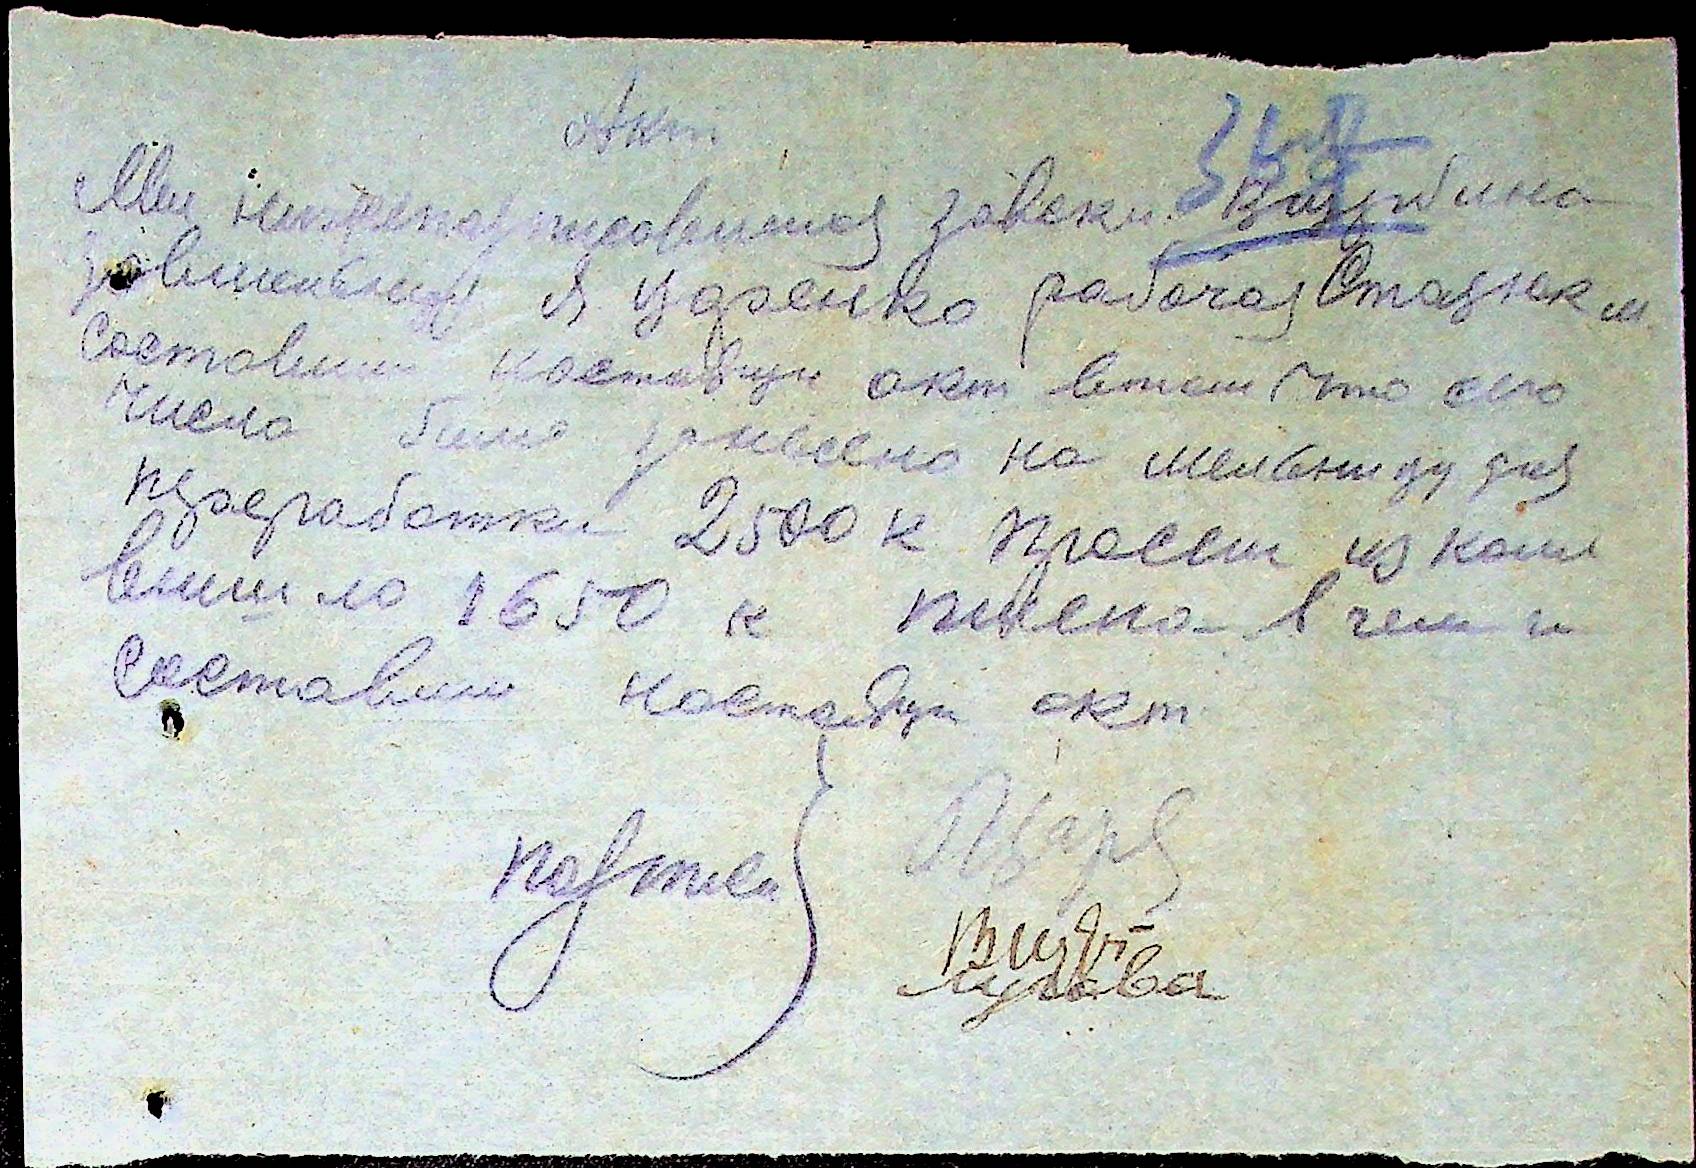 Акт
Мы нижеподписавшиеся завскл.
Я Царенко рабочая Стацюк м.
составили настоящи акт в том что сего
числа было завесено на мельницу для
переработки 2500 к просы из коих
вышло 1650 к пшена в чем и
составили настоящи акт
подписи